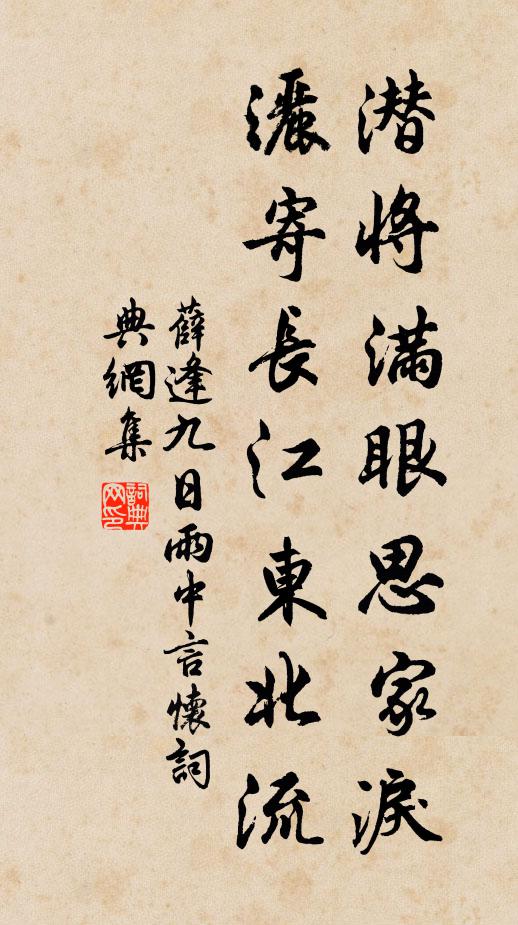 潜將滿眼思家淚
灑寄長江東北流
薛逢九日雨中言懷詞
典網集
詞典网印